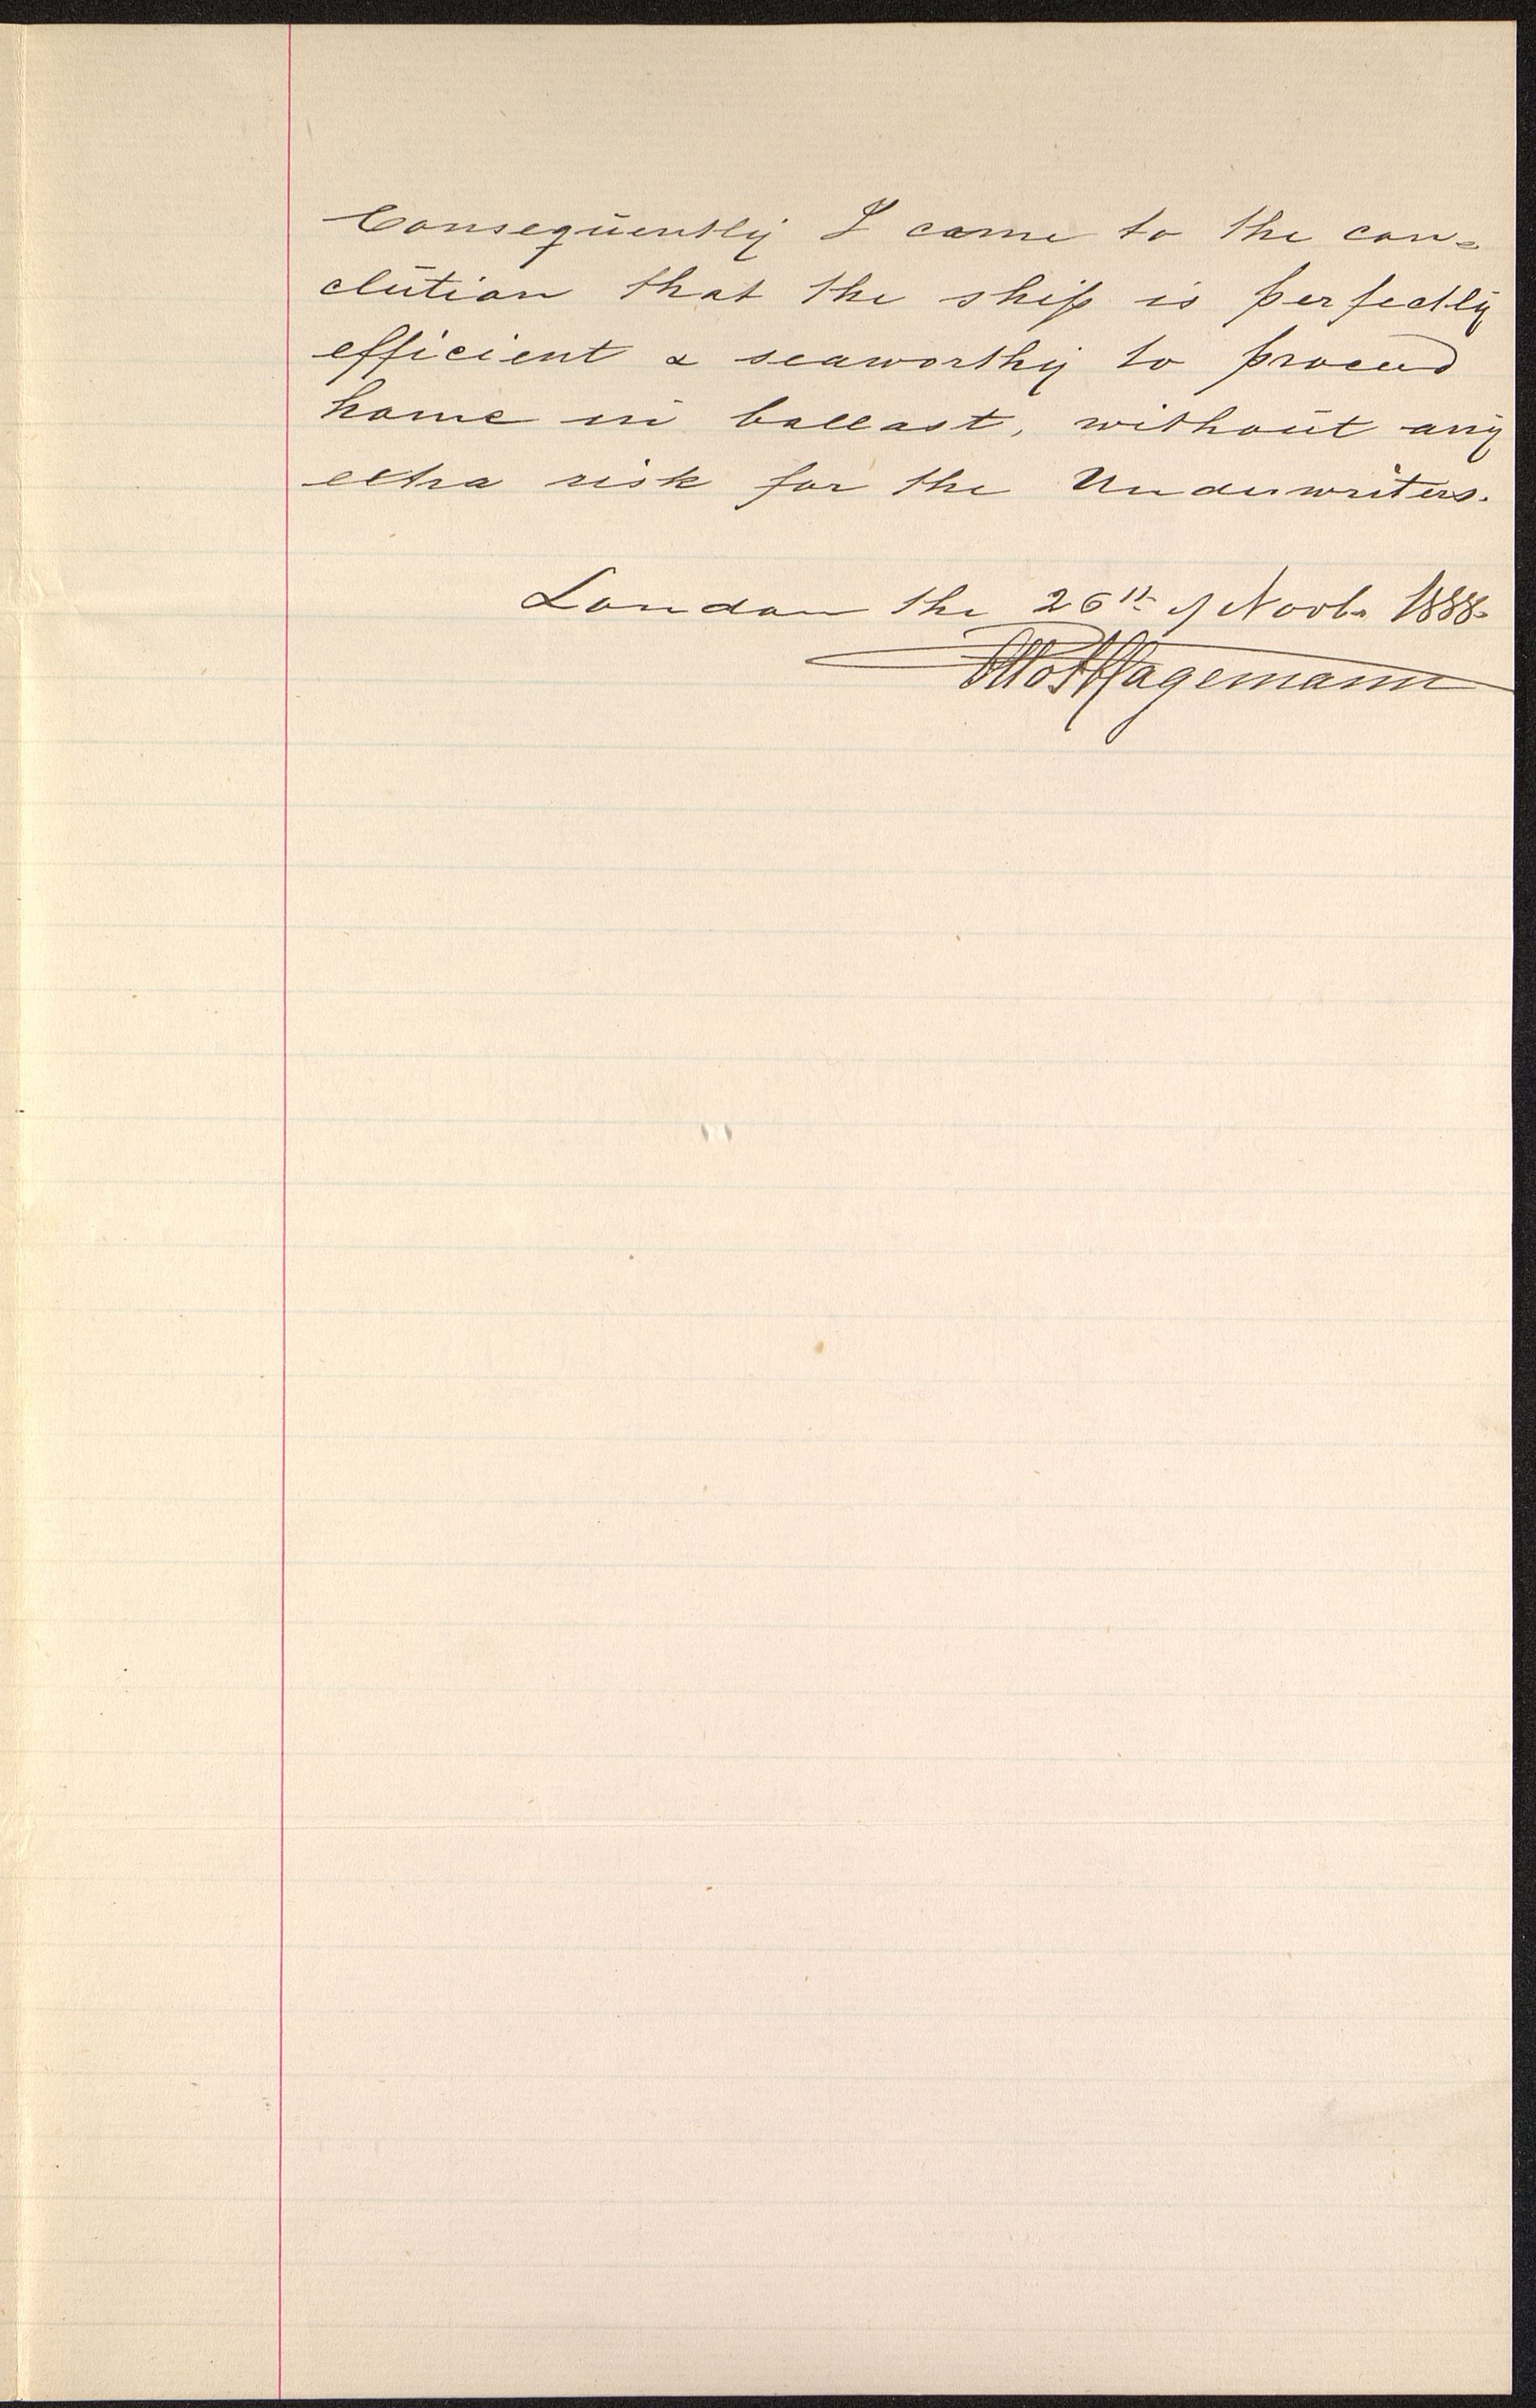 Consequently I came to the con=
clution that the ship is perfectly
efficient & seaworthy to proceed
home in ballast, without any
extra risk for the Underwriters.
London the 26th of Novb. 1888.
Hagemann